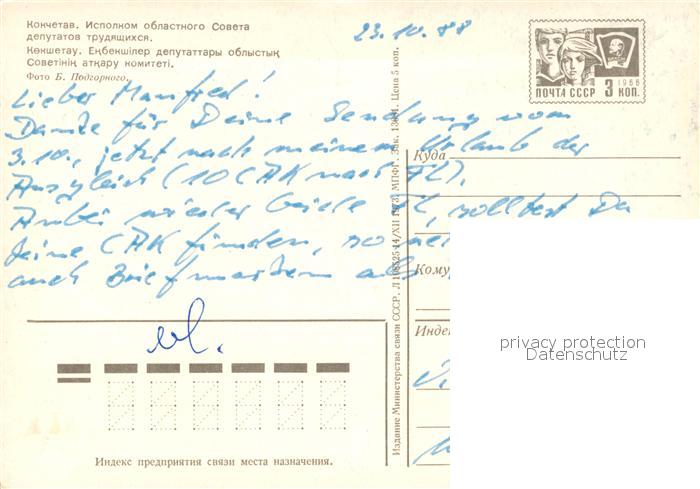 Кокчетав. Исполком областного Совета
депутатов трудящихся.
Көкшетау. Еңбекшілер депутаттары облыстық
Советінің атқару комитеті.
Фото Б. Подгорного.
23.10.88
ПОЧТА СССР 3 КОП.
1966
Lieber Manfred!
Danke für Deine Sendung vom
3.10., jetzt nach meinem Urlaub der
Ausgleich (10 CAK nach
Anbei wieder beide solltest Du
keine CAK finden, so
auch Briefmarken als
Издание Министерства связи СССР. МПФГ. Цена 5 коп.
Куда
Кому
Индек
privacy protection
Datenschutz
Индекс предприятия связи места назначения.